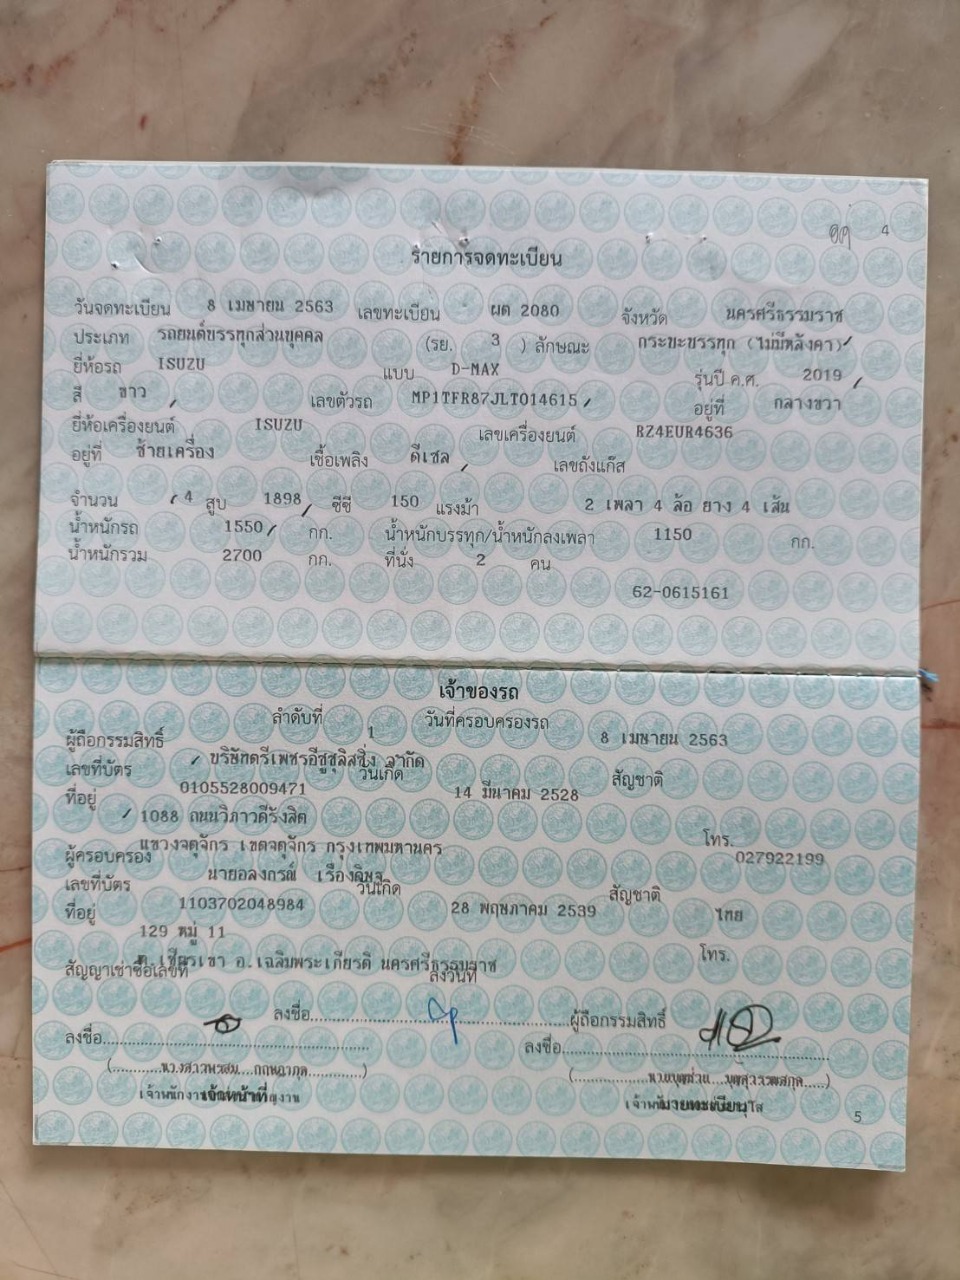 4
รายการจดทะเบียน
วันจดทะเบียน 8 เมษายน 2563 เลขทะเบียน ผต 2080 จังหวัด นครศรีธรรมราช
ประเภท รถยนต์บรรทุกส่วนบุคคล (รย. 3 ) ลักษณะ กระบะบรรทุก (ไม่มีหลังคา)
ยี่ห้อรถ ISUZU แบบ D-MAX รุ่นปี ค.ศ. 2019
สี ขาว เลขตัวรถ MP1TFR87JLT014615 อยู่ที่ กลางขวา
ยี่ห้อเครื่องยนต์ ISUZU เลขเครื่องยนต์ RZ4EUR4636
อยู่ที่ ซ้ายเครื่อง เชื้อเพลิง ดีเซล เลขถังแก๊ส
จำนวน 4 สูบ 1898 ซีซี 150 แรงม้า 2 เพลา 4 ล้อ ยาง 4 เส้น
น้ำหนักรถ 1550 กก. น้ำหนักบรรทุก/น้ำหนักลงเพลา 1150 กก.
น้ำหนักรวม 2700 กก. ที่นั่ง 2 คน
62-0615161
เจ้าของรถ
ลำดับที่ 1 วันที่ครอบครองรถ 8 เมษายน 2563
ผู้ถือกรรมสิทธิ์ บริษัทตรีเพชรอีซูซุลิสซิ่ง จำกัด
เลขที่บัตร 0105528009471 วันเกิด 14 มีนาคม 2528 สัญชาติ
ที่อยู่ 1088 ถนนวิภาวดีรังสิต
แขวงจตุจักร เขตจตุจักร กรุงเทพมหานคร โทร. 027922199
ผู้ครอบครอง นายอลงกรณ์
เลขที่บัตร 1103702048984 วันเกิด 28 พฤษภาคม 2539 สัญชาติ ไทย
ที่อยู่ 129 หมู่ 11
ต.เชียรเขา อ.เฉลิมพระเกียรติ นครศรีธรรมราช โทร.
สัญญาเช่าซื้อเลขที่ ลงวันที่
ลงชื่อ ผู้ถือกรรมสิทธิ์
ลงชื่อ ลงชื่อ
เจ้าหน้าที่ นายทะเบียน
5